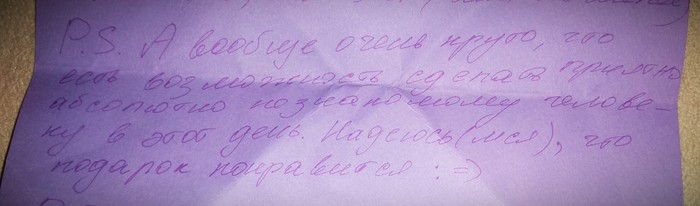 P.S. А вообще очень круто, что
есть возможность сделать приятно
абсолютно незнакомому челове-
ку в этот день. Надеюсь(мся), что
подарок понравится :=)